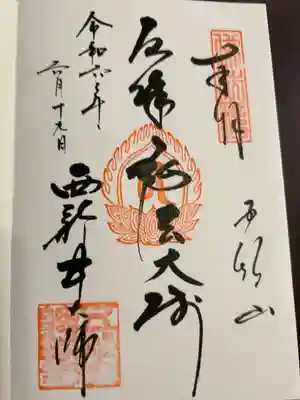 奉拝
五智山
厄除 弘法大師
西新井大師
令和六年
六月十九日